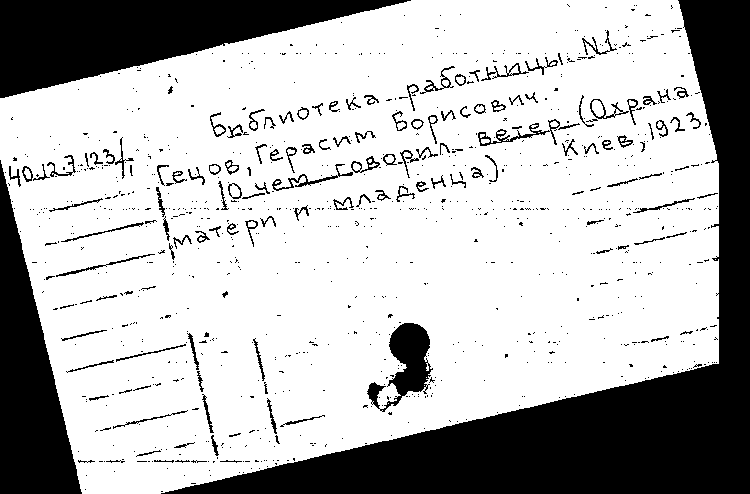 Библиотека работницы N1.
40.12.7.123/1 Гецов, Герасим Борисович.
О чем говорил ветер. (Охрана
матери и младенца). Киев, 1923.